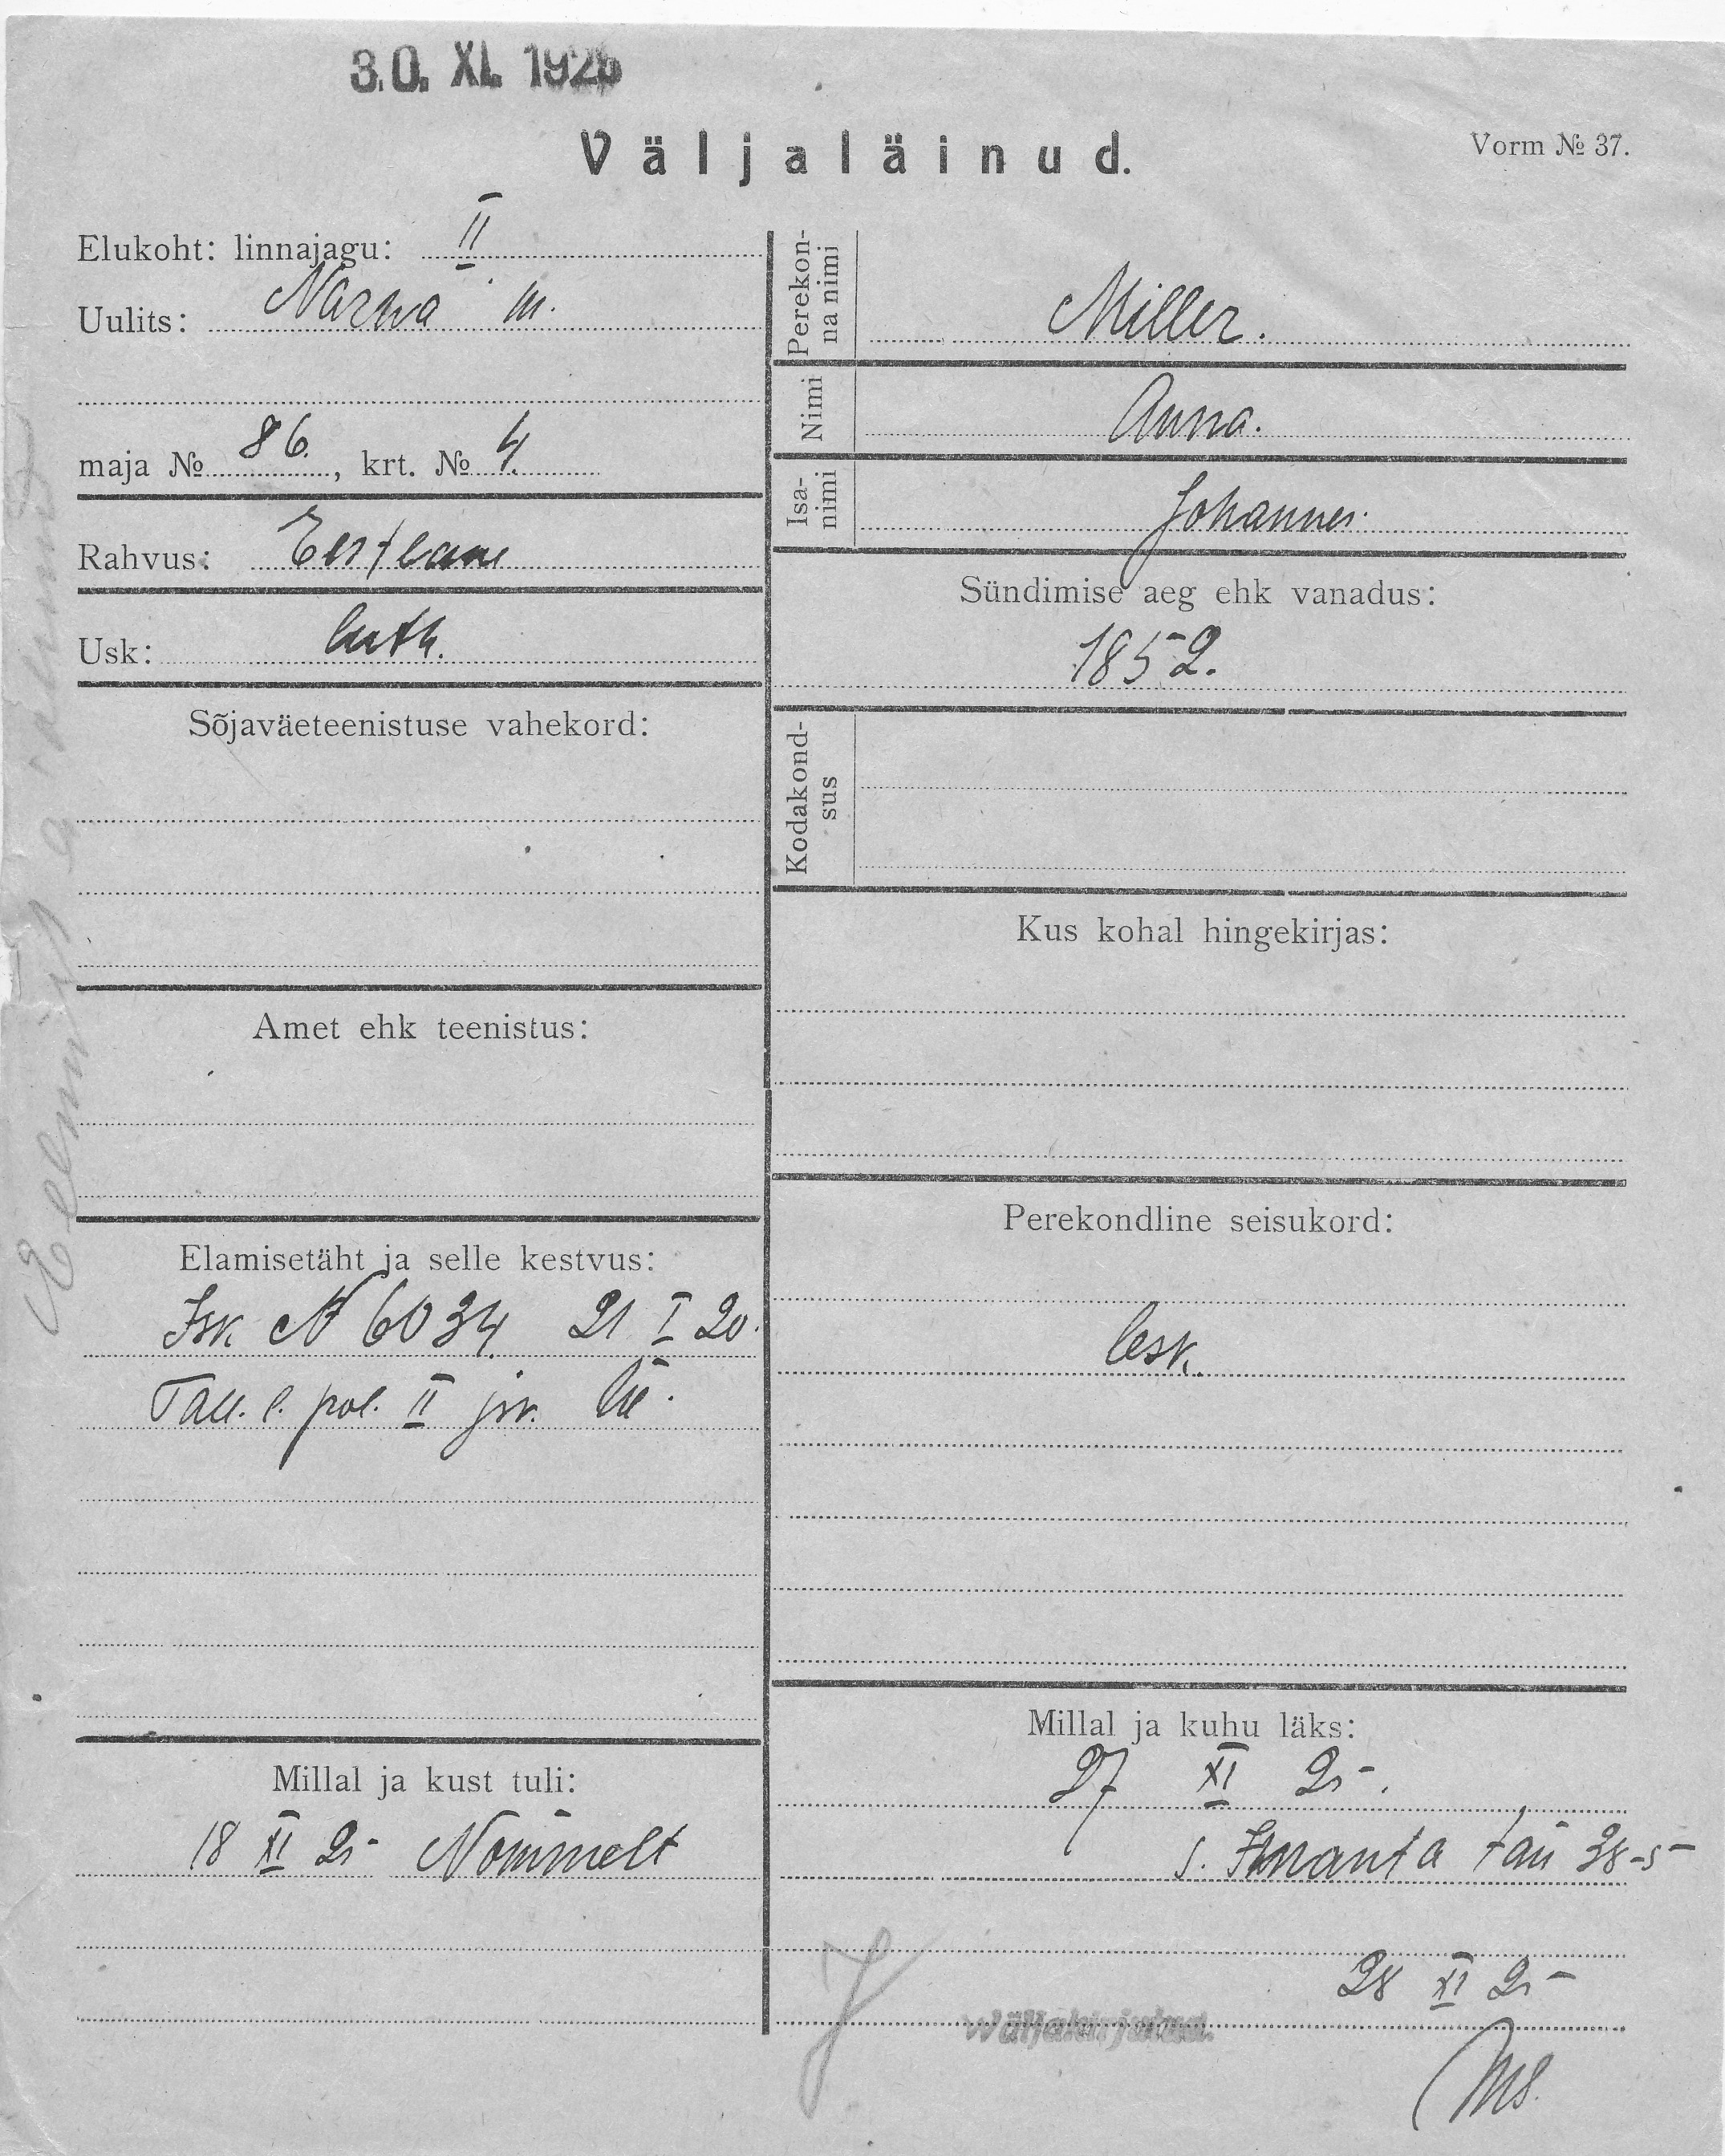 30. XI. 1925
Väljaläinud.
Vorm № 37.
Elukoht: linnajagu: II
Uulits: Narva m.
maja № 86., krt. № 4.
Rahvus: Eestlane
Usk: luth.
Sõjaväeteenistuse vahekord:
Amet ehk teenistus:
Elamisetäht ja selle kestvus:
Isk № 6034. 21 I 20.
Tall. l. pol. II jsk. ül.
Millal ja kust tuli:
18 XI 25 Nõmmelt
Perekon-
na nimi
Miller.
Nimi
Anna.
Isa-
nimi
Johannes.
Sündimise aeg ehk vanadus:
1852.
Kodakond-
sus
Kus kohal hingekirjas:
Perekondline seisukord:
lesk.
Millal ja kuhu läks:
27 XI 25.
s. tän 38-5
28 XI 25
Wäljakirjutud.
Eelmist